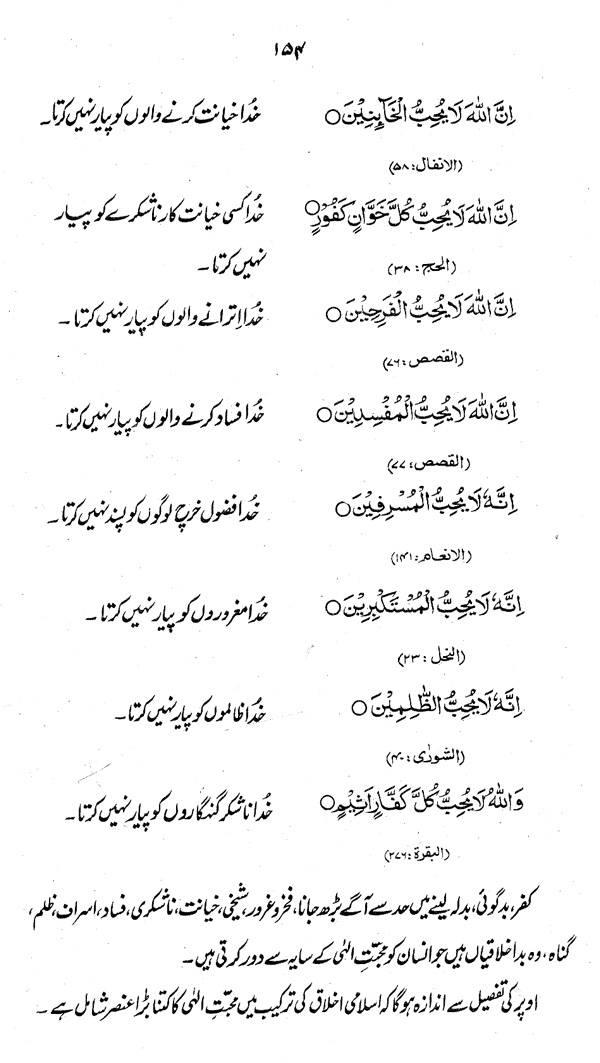 ۱۵۴
اِنَّ اللّٰهَ لَا يُحِبُّ الْخَآئِنِيْنَ ○ خُدا خیانت کرنے والوں کو پیار نہیں کرتا۔
(الانفال: ۵۸)
اِنَّ اللّٰهَ لَا يُحِبُّ كُلَّ خَوَّانٍ كَفُوْرٍ ○ خُدا کسی خیانت کار ناشکرے کو پیار
(الحج: ۳۸) نہیں کرتا۔
اِنَّ اللّٰهَ لَا يُحِبُّ الْفَرِحِيْنَ ○ خُدا اِترانے والوں کو پیار نہیں کرتا۔
(القصص: ۷۶)
اِنَّ اللّٰهَ لَا يُحِبُّ الْمُفْسِدِيْنَ ○ خُدا فساد کرنے والوں کو پیار نہیں کرتا۔
(القصص: ۷۷)
اِنَّهٗ لَا يُحِبُّ الْمُسْرِفِيْنَ ○ خُدا فضول خرچ لوگوں کو پسند نہیں کرتا۔
(الانعام: ۱۴۱)
اِنَّهٗ لَا يُحِبُّ الْمُسْتَكْبِرِيْنَ ○ خُدا مغروروں کو پیار نہیں کرتا۔
(النحل: ۲۳)
اِنَّهٗ لَا يُحِبُّ الظّٰلِمِيْنَ ○ خُدا ظالموں کو پیار نہیں کرتا۔
(الشورٰی: ۴۰)
وَاللّٰهُ لَا يُحِبُّ كُلَّ كَفَّارٍ اَثِيْمٍ ○ خُدا ناشکر گنہگاروں کو پیار نہیں کرتا۔
(البقرة: ۲۷۶)
کفر، بدگوئی، بدلہ لینے میں حد سے آگے بڑھ جانا، فخر و غرور، شیخی، خیانت، ناشکری، فساد، اسراف، ظلم،
گناہ، وہ بداخلاقیاں ہیں جو انسان کو محبّتِ الٰہی کے سایہ سے دور کرتی ہیں۔
اوپر کی تفصیل سے اندازہ ہوگا کہ اسلامی اخلاق کی ترکیب میں محبّتِ الٰہی کا کتنا بڑا عنصر شامل ہے۔